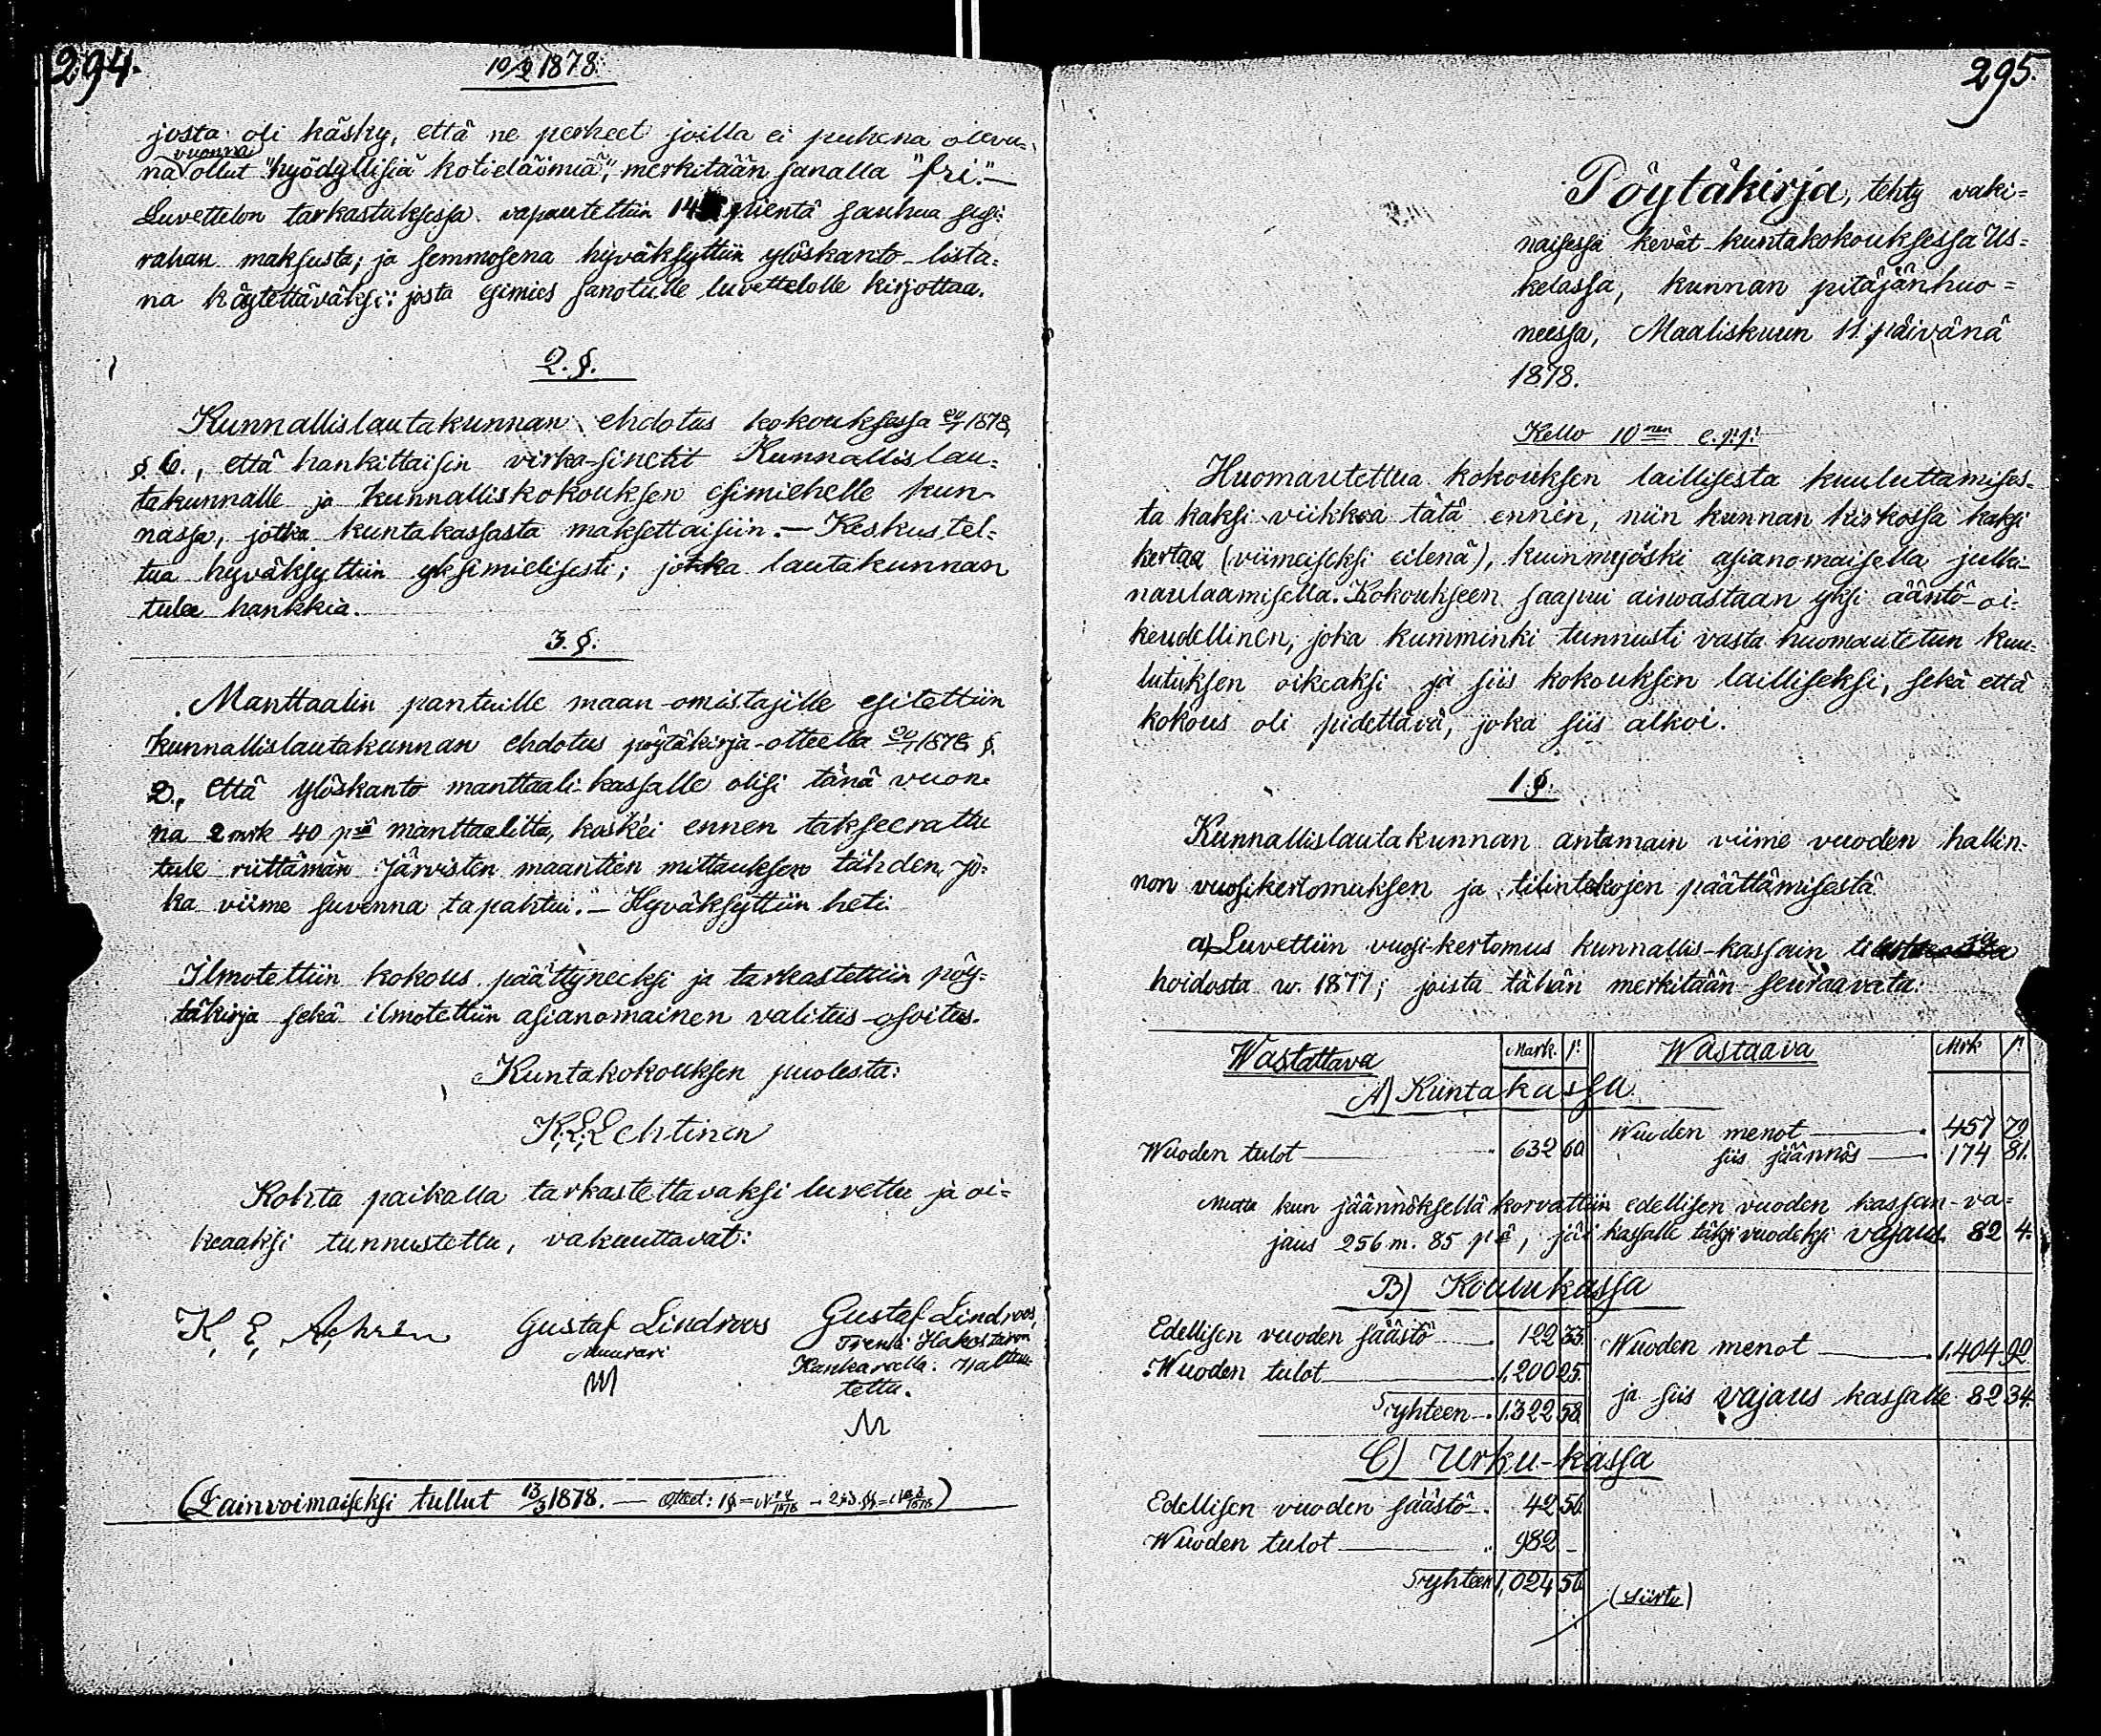 294.
10/2 1878.
josta oli käsky, että ne perheet joilla ei puheena olevu=
vuonna
na ollut "hyödyllisiä kotieläimiä", merkitään sanalla "fri."—
Luvettelon tarkastuksessa vapautettiin 14 pientä sauhua susi=
rahan maksusta; ja semmosena hyväksyttiin ylöskanto-lista=
na käytettäväksi: josta esimies sanotulle luvettelolle kirjottaa.
2. §.
Kunnallislautakunnan ehdotus kokouksessa 1878,
§. 6., että hankittaisin virka-sinetit Kunnallislau=
takunnalle ja kunnalliskokouksen esimiehelle kun=
nassa, jotka kuntakassasta maksettaisiin. — Keskustel=
tua hyväksyttiin yksimielisesti; jotka lautakunnan
tulee hankkia.
3. §.
Manttaalin pantuille maan-omistajille esitettiin
kunnallislautakunnan ehdotus pöytäkirja-otteella 1878 §.
2., että ylöskanto manttaali-kassalle olisi tänä vuon=
na 2 mrk 40 p:ä manttaalilta, koskei ennen takseerattu
tule riittämän Järvisten maantien mittauksen tähden, jo=
ka viime suvenna tapahtui. — Hyväksyttiin heti.
Ilmotettiin kokous päättyneeksi ja tarkastettiin pöy=
täkirja sekä ilmotettiin asianomainen valitus-osoitus.
Kuntakokouksen puolesta:
K. E. Lehtinen
Kohta paikalla tarkastettavaksi luvettu ja oi=
keaksi tunnustettu, vakuuttavat:
K. E. Gustaf Lindroos Gustaf Lindroos,
Muurari
Kankareella.
tettu.
(Lainvoimaiseksi tullut 13/3 1878. —
295.
Pöytäkirja, tehty vaki=
naisessa kevät-kuntakokouksessa Us=
kelassa, kunnan pitäjänhuo=
neessa, Maaliskuun 11. päivänä
1878.
Kello 10 nen e.p.p.
Huomautettua kokouksen laillisesta kuuluttamises=
ta kaksi viikkoa tätä ennen, niin kunnan kirkossa kaksi
kertaa (viimeiseksi eilenä), kuinmyöski asianomaisella julki=
naulaamisella. Kokoukseen saapui ainoastaan yksi ääntö-oi=
keudellinen, joka kumminki tunnusti vasta huomautetun kuu=
lutuksen oikeaksi ja siis kokouksen lailliseksi, sekä että
kokous oli pidettävä, joka siis alkoi.
1. §.
Kunnallislautakunnan antamain viime vuoden hallin=
non vuosikertomuksen ja tilintekojen päättämisestä.
a) Luvettiin vuosi-kertomus kunnallis-kassain
hoidosta w. 1877; joista tähän merkitään seuraavata:
Wastattava Mark. p: Wastaava Mrk p:
A) Kuntakassa.
Wuoden tulot 632 60 Wuoden menot 457 79
siis jäännös 174 81.
Mutta kun jäännöksellä korvattiin edellisen vuoden kassan-va=
jaus 256 m. 85 p:ä, jäi kassalle täksi vuodeksi vajaus. 82 4.
B) Koulukassa
Edellisen vuoden säästö 122 33 Wuoden menot 1,404 92
Wuoden tulot 1,200 25. ja siis vajaus kassalle 82 34.
Syhteen 1,322 58.
C) Urku-kassa
Edellisen vuoden säästö 42 56
Wuoden tulot 982 —
Syhteen 1,024 56
(Siirto)